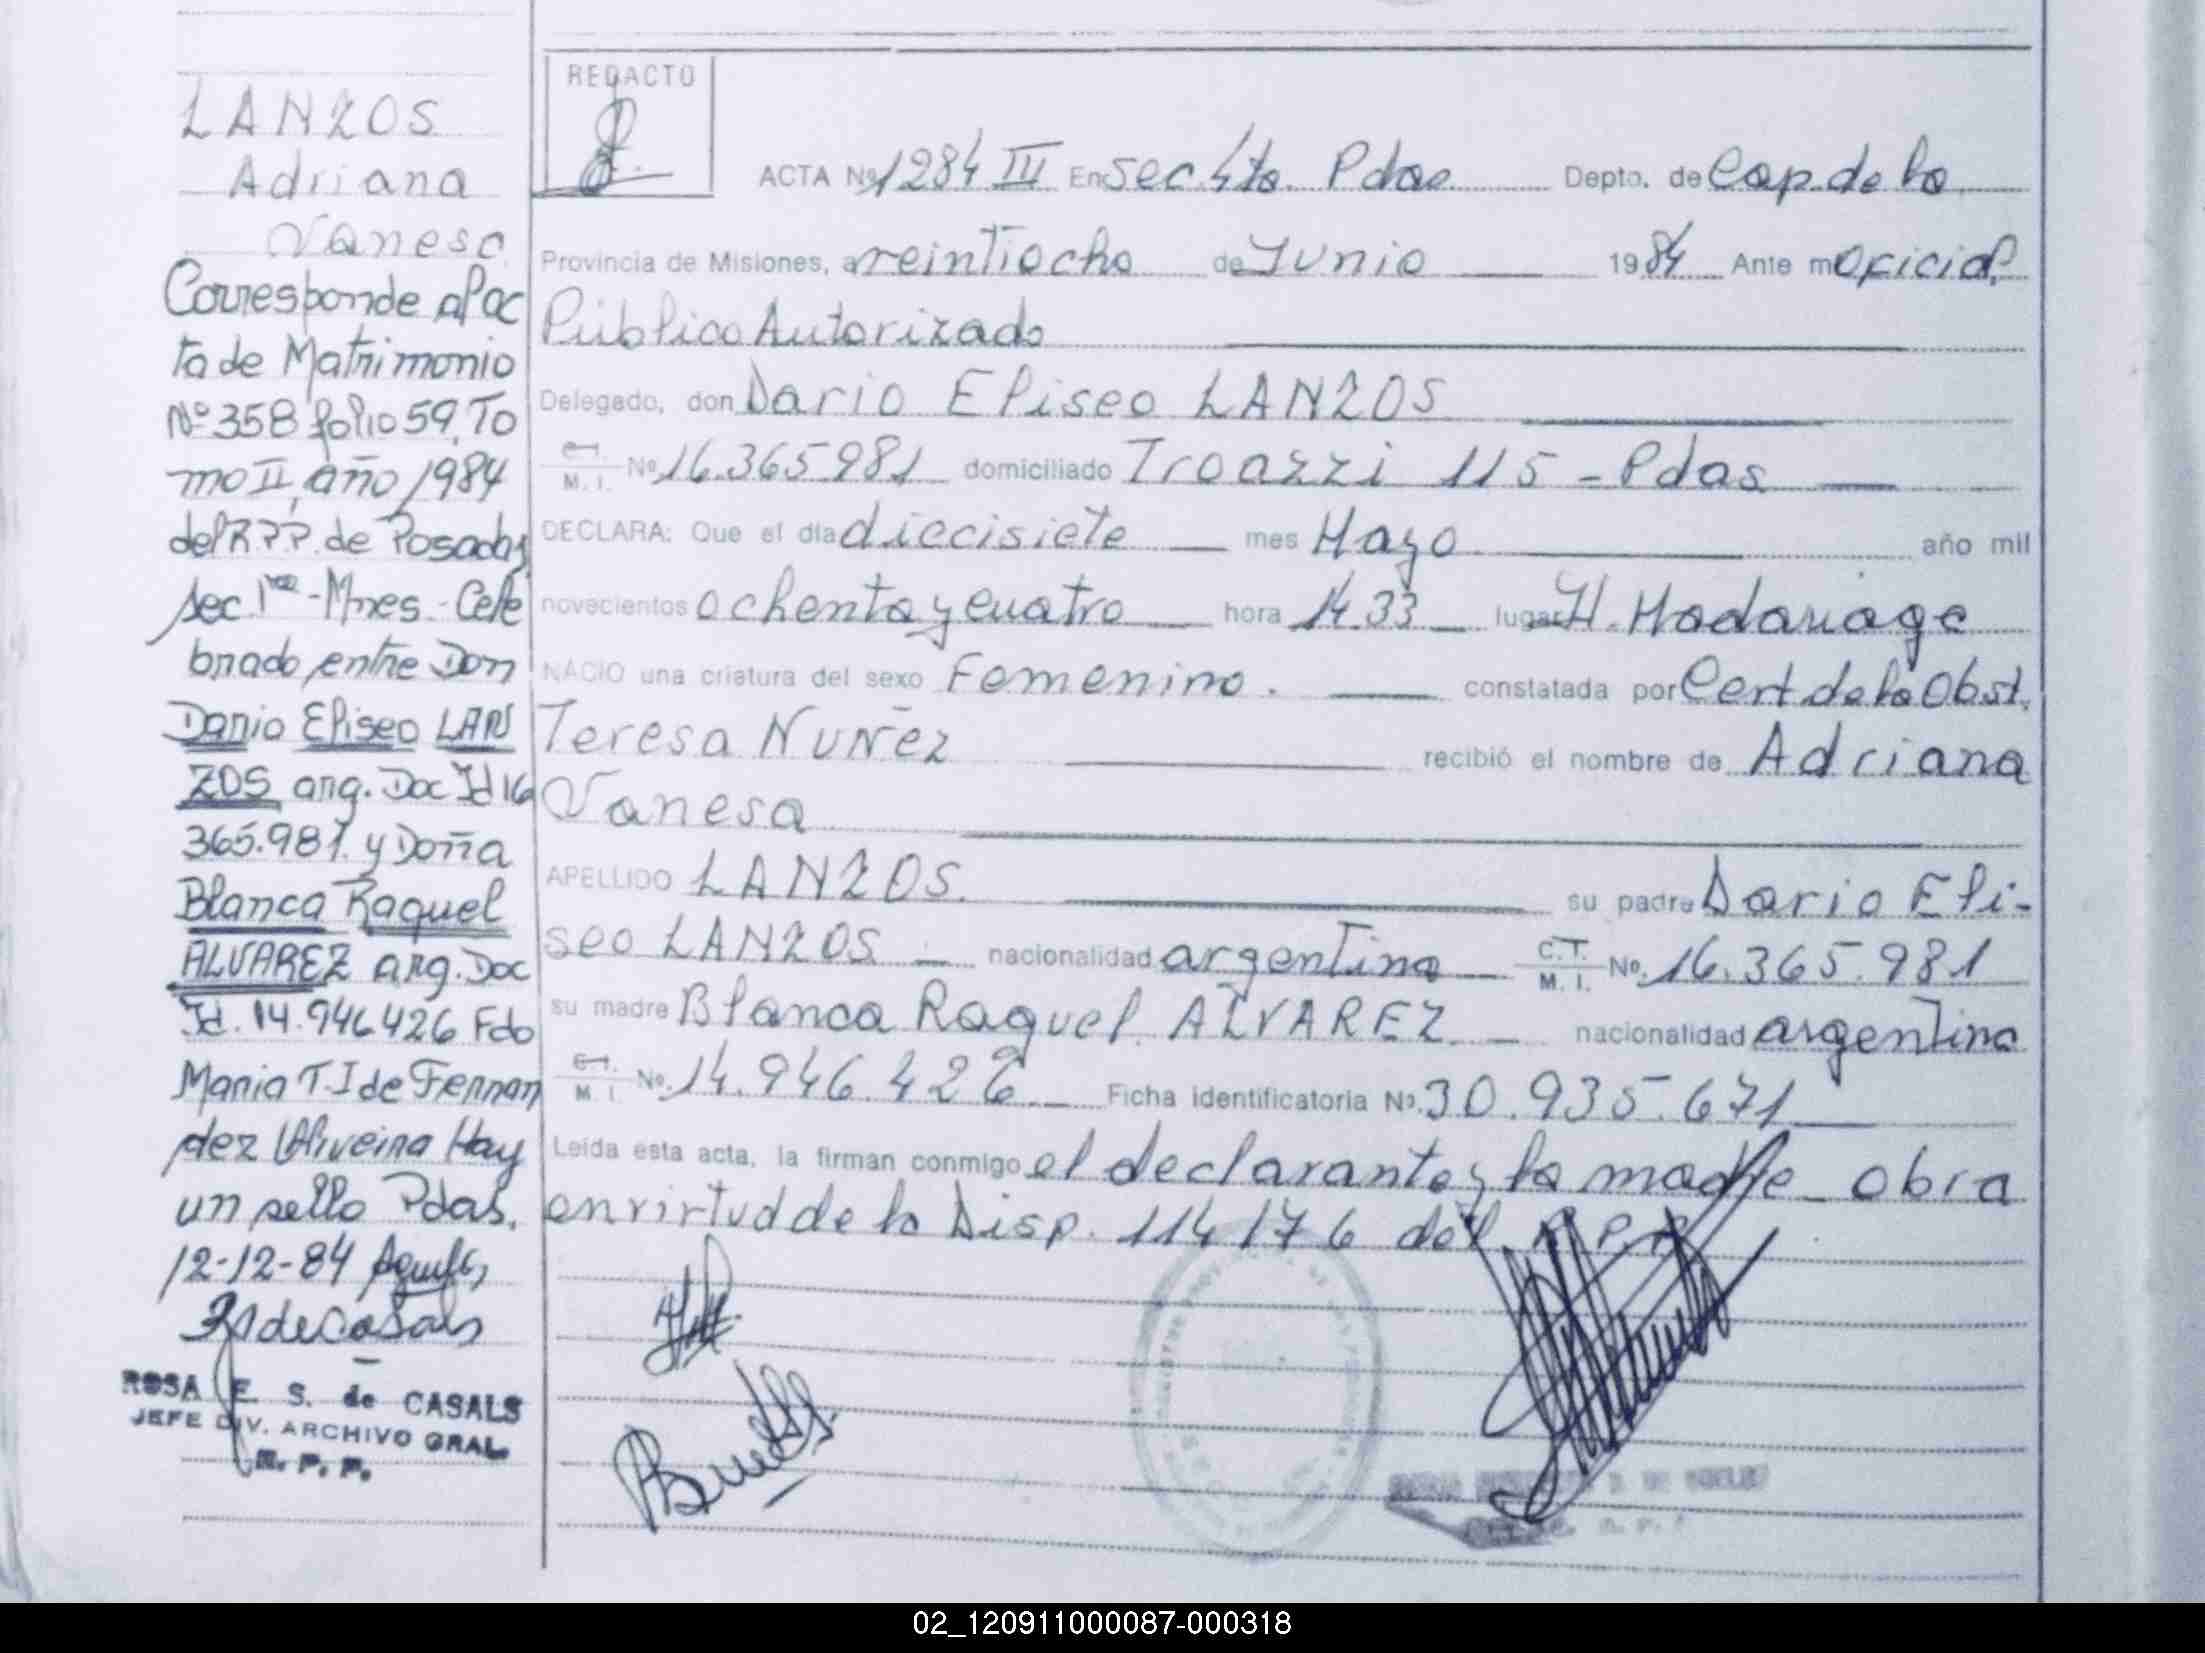 LANZOS
Adriana
Vanesa
Corresponde al Ac
ta de Matrimonio
Nº 358 folio 59, To
mo II, año 1984
del R.P.P. de Posadas
sec 1ra - Mnes. - Cele
brado entre Don
Dario Eliseo LAN
ZOS arg. Doc Id 16
365.981. y Doña
Blanca Raquel
ALVAREZ arg. Doc
Id. 14.946.426 Fdo
Maria T. I de Fernan
dez Oliveira Hay
un sello Pdas.
12-12-84
ROSA E. S. de CASALS
JEFE DIV. ARCHIVO GRAL.
R. P. P.
REDACTO
ACTA Nº 1284 III En Sec. 4ta. Pdas. Depto. de Cap. de la
Provincia de Misiones, a veintiocho de Junio 1984 Ante mi Oficial
Público Autorizado
Delegado, don Dario Eliseo LANZOS
C.T. M. I. Nº 16.365.981 domiciliado Troazzi 115 - Pdas.
DECLARA: Que el día diecisiete mes Mayo año mil
novecientos ochenta y cuatro hora 14.33 lugar H. Madariaga
NACIO una criatura del sexo Femenino. constatada por Cert. de la Obst.
Teresa Nuñez recibió el nombre de Adriana
Vanesa
APELLIDO LANZOS. su padre Dario Eli-
seo LANZOS nacionalidad argentina C.T. M. I. Nº. 16.365.981
su madre Blanca Raquel ALVAREZ nacionalidad argentina
C.T. M. I. Nº. 14.946.426 Ficha identificatoria Nº. 30.935.671
Leída esta acta, la firman conmigo el declarante y la madre - obra
en virtud de la Disp. 114/76 del R.P.P.
02_120911000087-000318